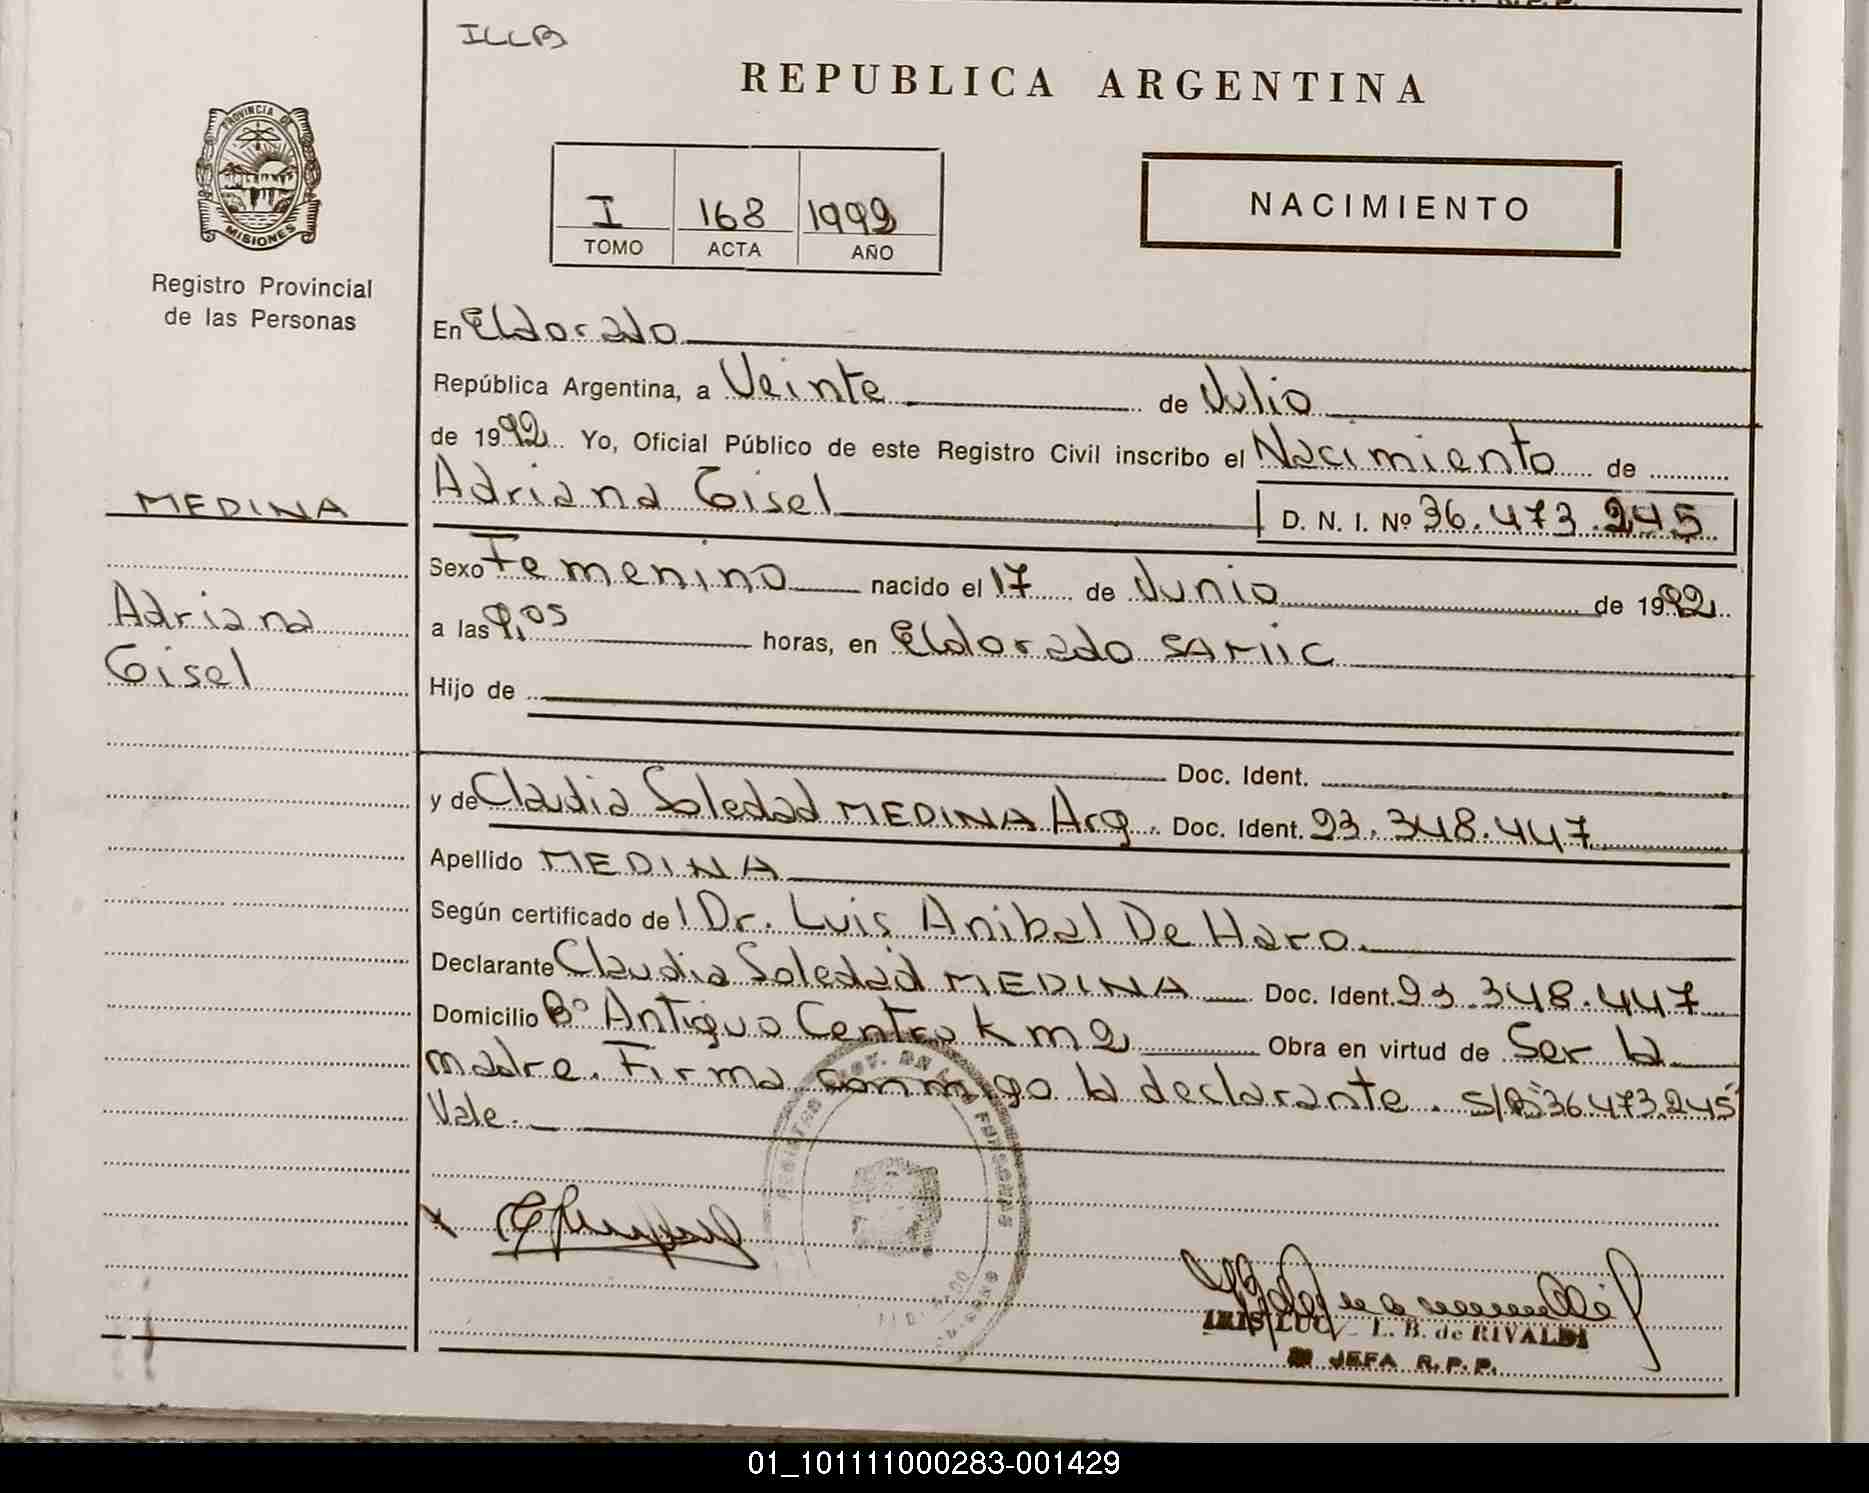 ILLB
REPUBLICA ARGENTINA
PROVINCIA DE
MISIONES
I 168 1992
TOMO ACTA AÑO
NACIMIENTO
Registro Provincial
de las Personas
En Eldorado
República Argentina, a Veinte de Julio
de 1992. Yo, Oficial Público de este Registro Civil inscribo el Nacimiento de
MEDINA
Adriana Gisel
D. N. I. Nº 36.473.245
Sexo Femenino nacido el 17 de Junio de 1992
Adriana
Gisel
a las 9,05 horas, en Eldorado SAMIC
Hijo de
Doc. Ident.
y de Claudia Soledad MEDINA Arg. Doc. Ident. 23.348.447
Apellido MEDINA
Según certificado de l Dr. Luis Anibal De Haro.
Declarante Claudia Soledad MEDINA Doc. Ident. 23.348.447
Domicilio Bº Antiguo Centro Km 2 Obra en virtud de Ser la
madre. Firma conmigo la declarante. S/R: 36.473.245
Vale.
L. B. de RIVALDI
JEFA R.P.P.
01_101111000283-001429